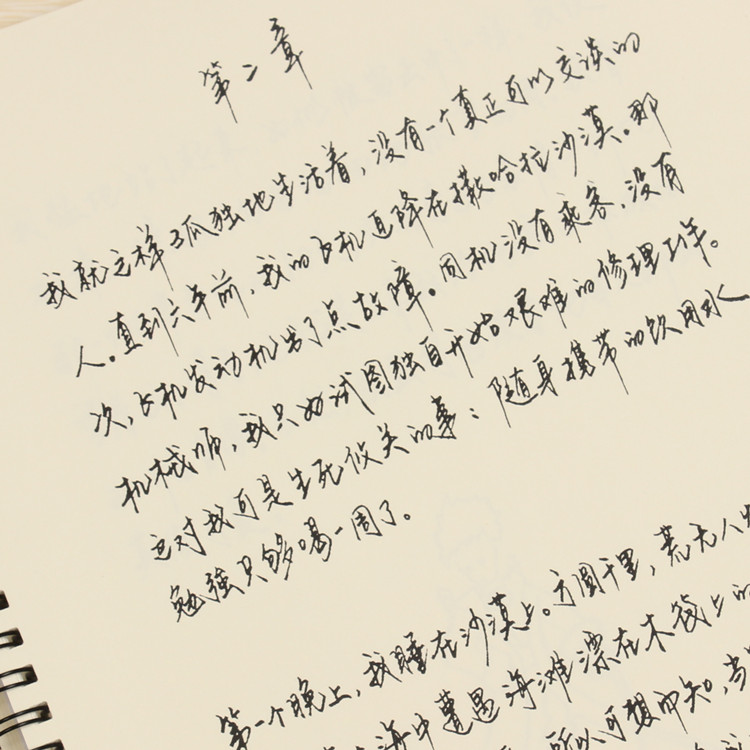 第二章
我就这样孤独地生活着，没有一个真正可以交谈的
人。直到六年前，我的飞机迫降在撒哈拉沙漠。那
次，飞机发动机出了点故障。同机没有乘客，没有
机械师，我只好试图独自开始艰难的修理工作。
这对我可是生死攸关的事：随身携带的饮用水
勉强只够喝一周了。
第一个晚上，我睡在沙漠上。方圆千里，荒无人
海中遭遇海滩漂在木筏上的
所以可想而知，当